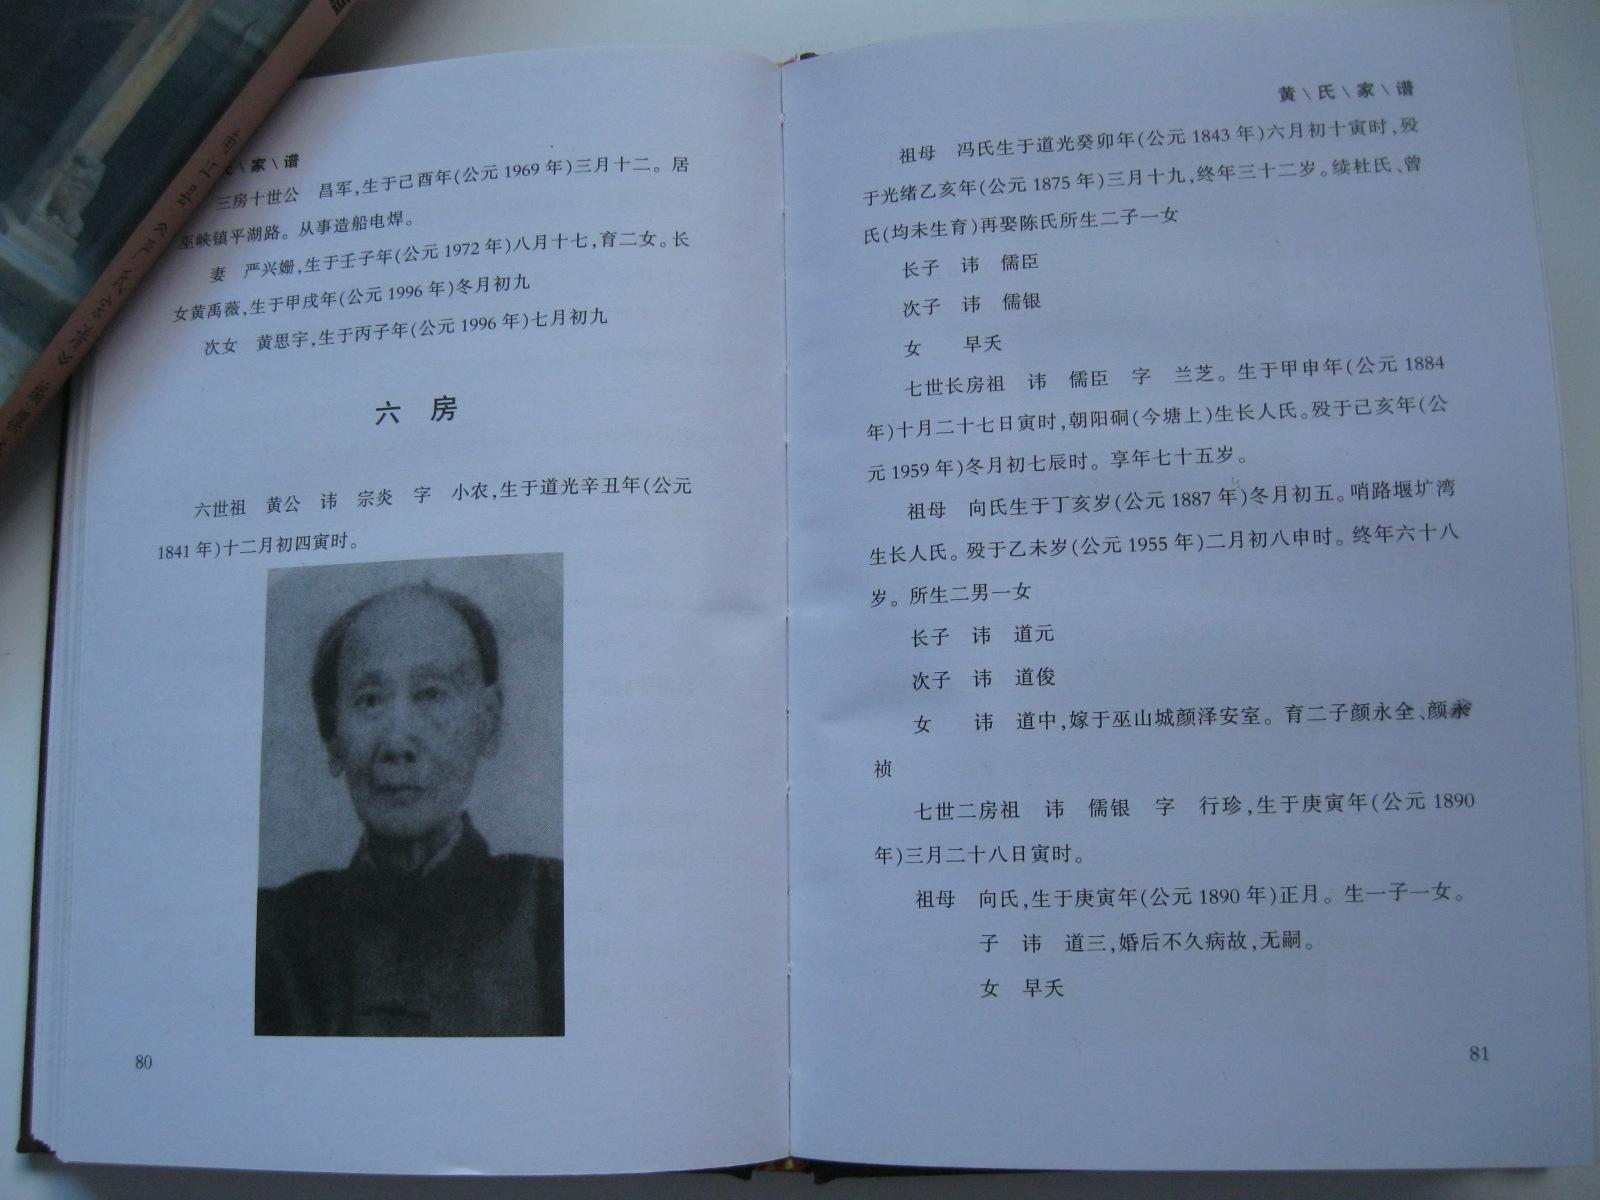 氏\家\谱
三房十世公 昌军,生于己酉年(公元1969年)三月十二。居
巫峡镇平湖路。从事造船电焊。
妻 严兴姗,生于壬子年(公元1972年)八月十七,育二女。长
女黄禹薇,生于甲戌年(公元1996年)冬月初九
次女 黄思宇,生于丙子年(公元1996年)七月初九
六 房
六世祖 黄公 讳 宗炎 字 小农,生于道光辛丑年(公元
1841年)十二月初四寅时。
80
黄\氏\家\谱
祖母 冯氏生于道光癸卯年(公元1843年)六月初十寅时,殁
于光绪乙亥年(公元1875年)三月十九,终年三十二岁。续杜氏、曾
氏(均未生育)再娶陈氏所生二子一女
长子 讳 儒臣
次子 讳 儒银
女 早夭
七世长房祖 讳 儒臣 字 兰芝。生于甲申年(公元1884
年)十月二十七日寅时,朝阳硐(今塘上)生长人氏。殁于己亥年(公
元1959年)冬月初七辰时。享年七十五岁。
祖母 向氏生于丁亥岁(公元1887年)冬月初五。哨路堰圹湾
生长人氏。殁于乙未岁(公元1955年)二月初八申时。终年六十八
岁。所生二男一女
长子 讳 道元
次子 讳 道俊
女 讳 道中,嫁于巫山城颜泽安室。育二子颜永全、颜永
祯
七世二房祖 讳 儒银 字 行珍,生于庚寅年(公元1890
年)三月二十八日寅时。
祖母 向氏,生于庚寅年(公元1890年)正月。生一子一女。
子 讳 道三,婚后不久病故,无嗣。
女 早夭
81